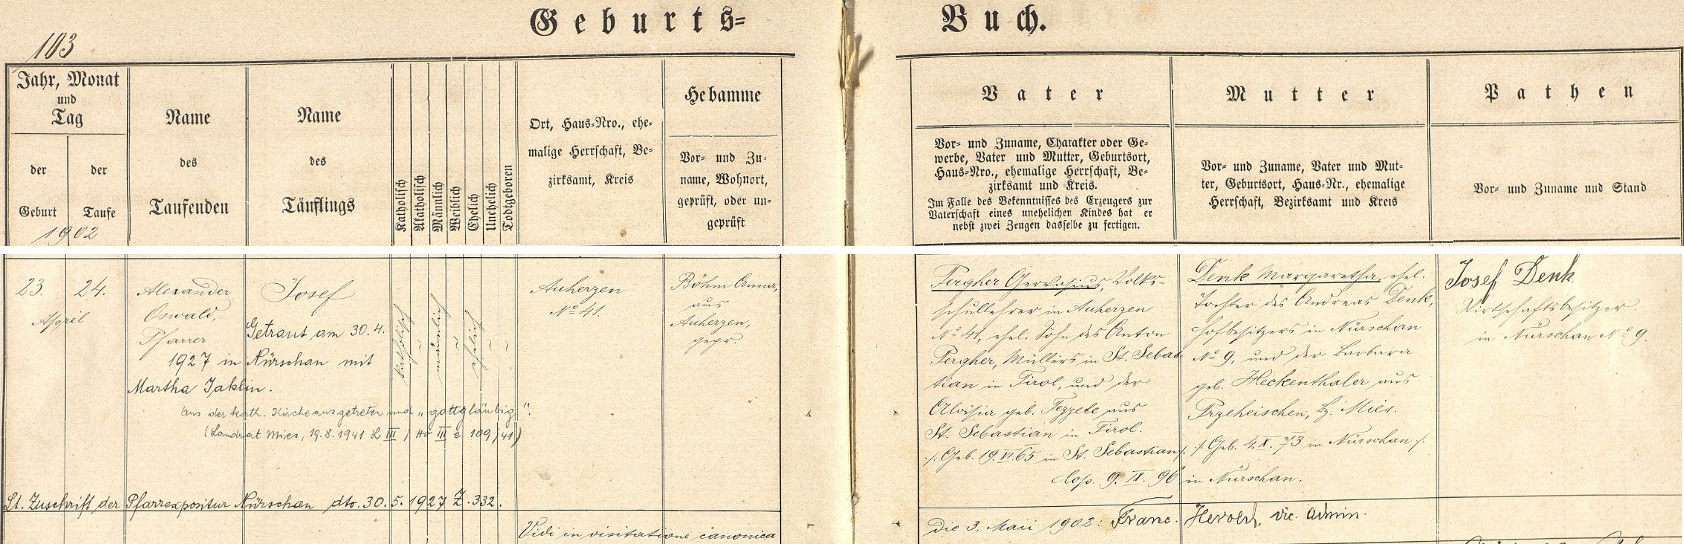 Geburts=
Buch.
103
Jahr, Monat
und
Tag
der
Geburt
der
Taufe
1902
Name
des
Taufenden
Name
des
Täuflings
Katholisch
Akatholisch
Männlich
Weiblich
Ehelich
Unehelich
Todtgeboren
Ort, Haus-Nro., ehe-
malige Herrschaft, Be-
zirksamt, Kreis
Hebamme
Vor- und Zu-
name, Wohnort,
geprüft, oder un-
geprüft
Vater
Vor- und Zuname, Charakter oder Ge-
werbe, Vater und Mutter, Geburtsort,
Haus-Nro., ehemalige Herrschaft, Be-
zirksamt und Kreis.
Im Falle des Bekenntnisses des Erzeugers zur
Vaterschaft eines unehelichen Kindes hat er
nebst zwei Zeugen dasselbe zu fertigen.
Mutter
Vor- und Zuname, Vater und Mut-
ter, Geburtsort, Haus-Nr., ehemalige
Herrschaft, Bezirksamt und Kreis
Pathen
Vor- und Zuname und Stand
23. 24.
April
Alexander
Oswald,
Pfarrer
Josef
Getraut am 30.4.
1927 in Nürschan mit
Martha Jaklin.
Aus der kath. Kirche ausgetreten und "gottgläubig".
(Landrat Mies, 19.8.1941 L III / Ho III e 109/41)
Lt. Zuschrift der Pfarrexpositur Nürschan dto. 30.5.1927 Z. 332.
katholisch
männlich
ehelich
Auherzen
No 41.
Böhm Anna,
aus
Auherzen,
gepr.
Vidi in visitatione canonica
Pergher Gervasius, Volks-
schullehrer in Auherzen
No 41, ehel. Sohn des Anton
Pergher, Müllers in St. Sebas
tian in Tirol, und der
Aloisia geb. Fezzete aus
St. Sebastian in Tirol.
/. Geb. 19. VI 65 in St. Sebastian /.
cop. 9. II. 96 in Nürschan.
Denk Margaretha, ehel.
Tochter des Andreas Denk,
Hofbesitzers in Nürschan
No 9, und der Barbara
geb. Heckenthaler, aus
Przeheischen, Bz. Mies.
/. Geb. 4. X. 73 in Nürschan /.
Josef Denk
Wirtschaftsbesitzer
in Nürschan No 9.
die 3. Maii 1902: Franc. Herold, vic. admin.